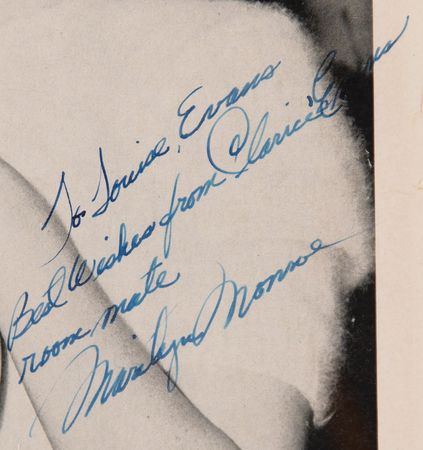 To Louise Evans
Best Wishes from Clarice Evans
room mate
Marilyn Monroe